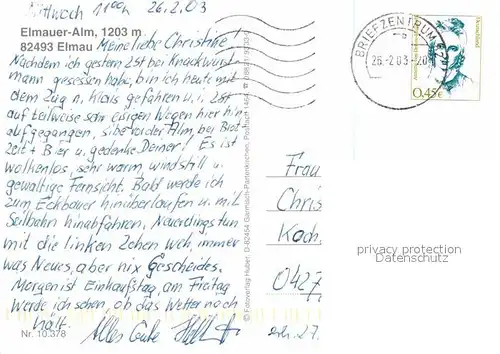 Mittwoch 11ººh 26.2.03
Elmauer-Alm, 1203 m
82493 Elmau
Meine liebe Christine!
Nachdem ich gestern 2St bei Knackwurst
mann gesessen habe, bin ich heute mit
dem Zug n. Klais gefahren u. i. 2St
auf teilweise sehr eisigen Wegen hier hin
aufgegangen, sitze vor der Alm, bei Brot
zeit + Bier u. gedenke Deiner! Es ist
wolkenlos, sehr warm, windstill u.
gewaltige Fernsicht. Bald werde ich
zum Eckbauer hinüberlaufen u. mit
Seilbahn hinabfahren. Neuerdings tun
mit die linken Zehen weh, immer
was Neues, aber nix Gescheides.
Morgen ist Einkaufstag, am Freitag
werde ich sehen, ob das Wetter noch
hält. Alles Gute
Nr. 10.378
© Fotoverlag Huber, D-82454 Garmisch-Partenkirchen, Postfach 1454
BRIEFZENTRUM
26-2 03-20
Deutschland
0.45€
Frau
Chris
Koch
0427
privacy protection
Datenschutz